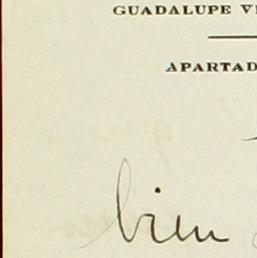 GUADALUPE V
APARTAD
bien